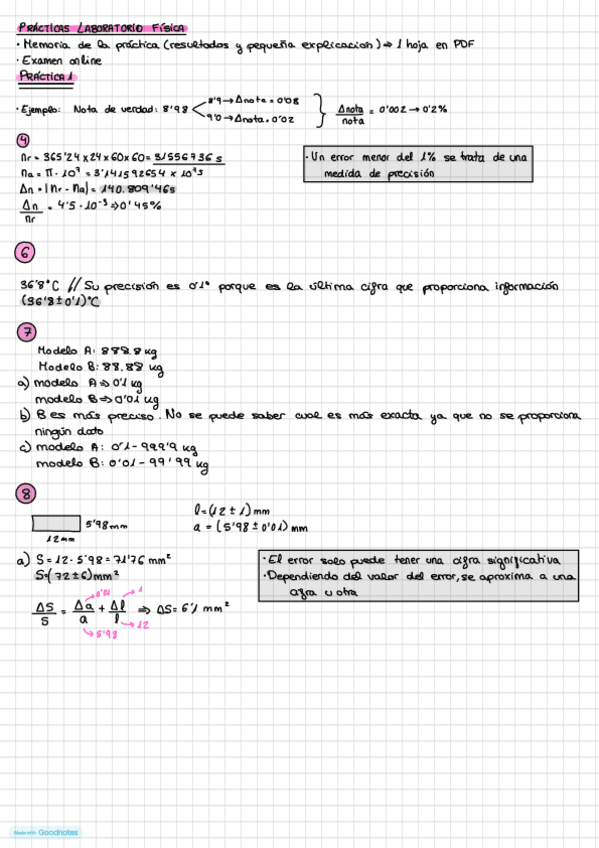 PRÁCTICAS LABORATORIO FÍSICA
· Memoria de la práctica (resultados y pequeña explicación) ⇒ 1 hoja en PDF
· Examen online
PRÁCTICA 1
· Ejemplo: Nota de verdad: 8'98
8'9 → Δnota = 0'08
9'0 → Δnota = 0'02
Δnota/nota = 0'002 → 0'2%
4
nr = 365'24 x 24 x 60 x 60 = 31556736 s
na = π · 10⁷ = 3'141592654 x 10⁷ s
Δn = |nr - na| = 140.809'46s
Δn/nr = 4'5 · 10⁻³ ⇒ 0'45%
· Un error menor del 1% se trata de una
medida de precisión
6
36'8°C // Su precisión es 0'1° porque es la última cifra que proporciona información
(36'8 ± 0'1)°C
7
Modelo A: 888.8 kg
Modelo B: 88.88 kg
a) modelo A ⇒ 0'1 kg
modelo B ⇒ 0'01 kg
b) B es más preciso. No se puede saber cual es más exacta ya que no se proporciona
ningún dato
c) modelo A: 0'1 - 999'9 kg
modelo B: 0'01 - 99'99 kg
8
5'98 mm
12 mm
l = (12 ± 1) mm
a = (5'98 ± 0'01) mm
a) S = 12 · 5'98 = 71'76 mm²
S = (72 ± 6) mm²
ΔS/S = Δa/a + Δl/l ⇒ ΔS = 6'1 mm²
0'01
1
5'98
12
· El error solo puede tener una cifra significativa
· Dependiendo del valor del error, se aproxima a una
cifra u otra
Made with Goodnotes